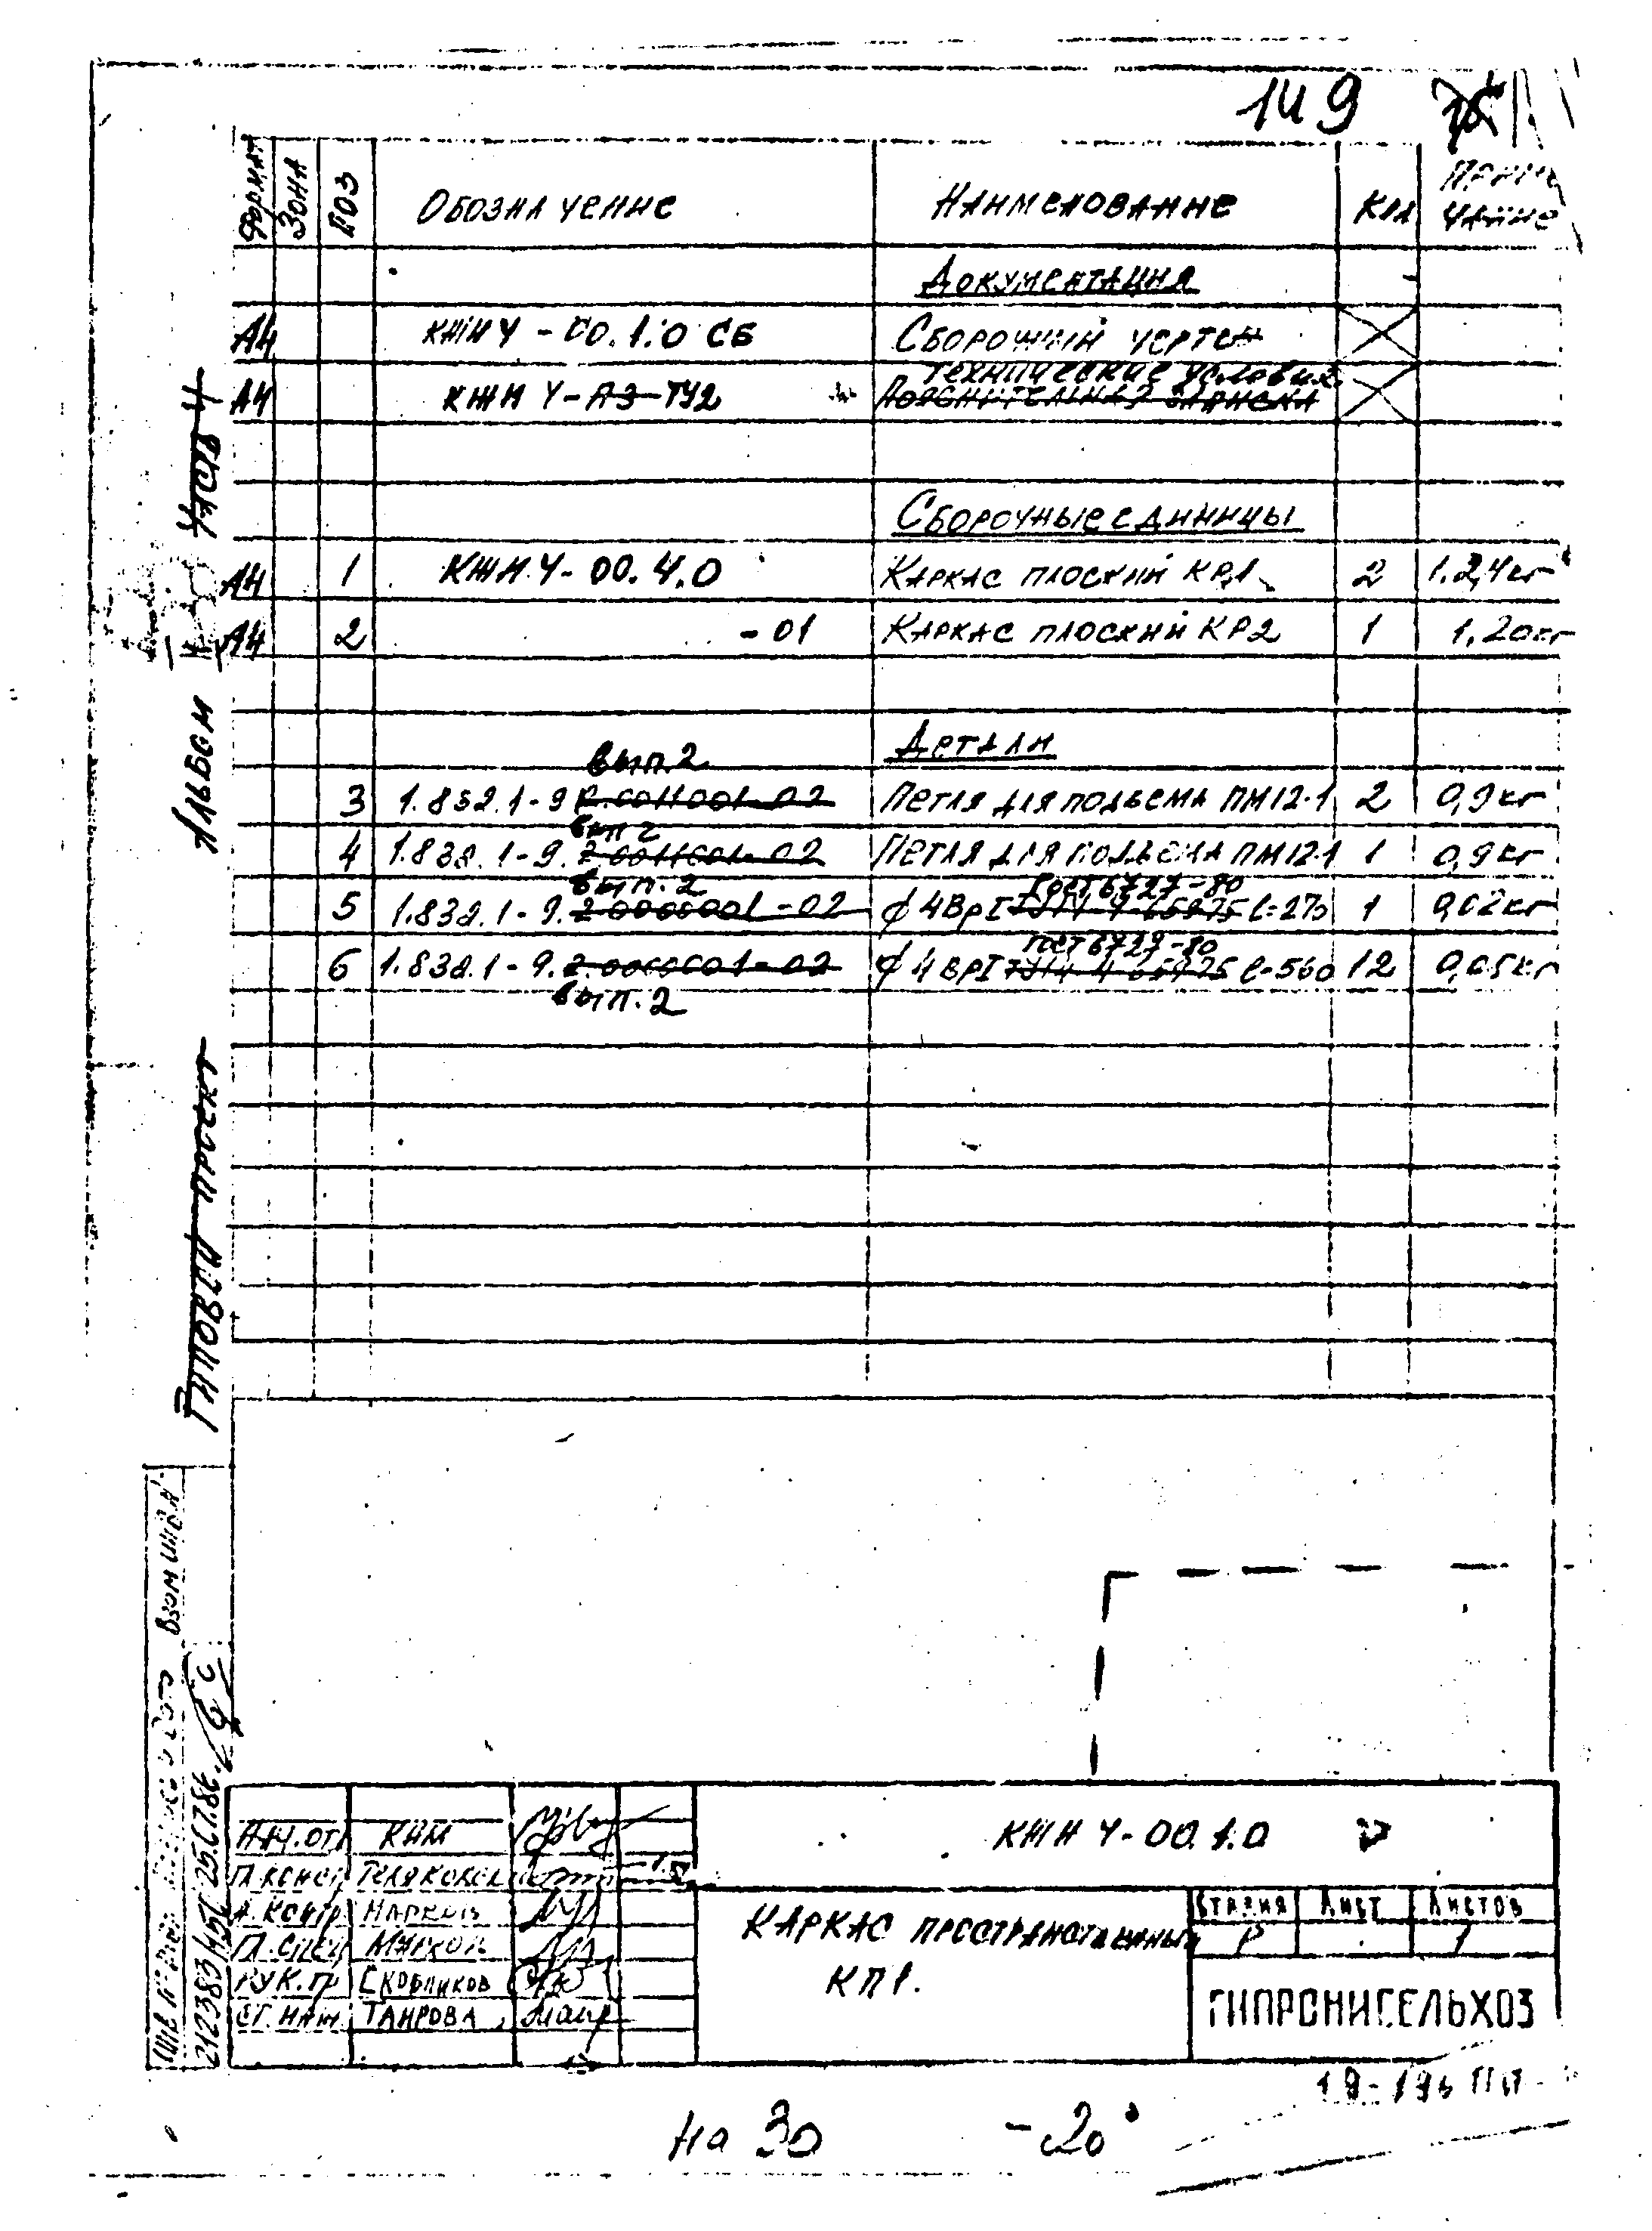 149
Формат Зона Поз Обозначение Наименование Кол Приме
чание
Документация
А4 КЖИ Ч-00.1.0 СБ Сборочный чертеж
Технические условия
А4 КЖИ Ч-ПЗ-ТУ2 Пояснительная записка
Сборочные единицы
А4 1 КЖИ.Ч-00.4.0 Каркас плоский КР1 2 1.2,4кг
А4 2 -01 Каркас плоский КР2 1 1,20кг
Детали
вып.2
3 1.832.1-9 2.0011001-02 Петля для подъема ПМ12-1 2 0,9кг
вып 2
4 1.832.1-9. 2.0011001-02 Петля для подъема ПМ12-1 1 0,9кг
вып.2 ГОСТ 6727-80
5 1.832.1-9. 2.0000001-02 ф 4ВрI ТУ14-4-659-75 l=270 1 0,02кг
ГОСТ 6727-80
6 1.832.1-9. 2.0000001-02 ф 4ВрI ТУ14-4-659-75 l=560 12 0,05кг
вып.2
Альбом
Часть 4
Типовой проект
Взам инв.
Инв № подл
212383
КЖИ Ч-00.1.0
Нач.от КИМ
Н.контр Марков
Гл.спец Марков
Рук.гр Скобников
Ст.инж Таирова
Каркас пространственный
КП1.
Стадия Лист Листов
Р 1
ГИПРОНИСЕЛЬХОЗ
на 30 -20°